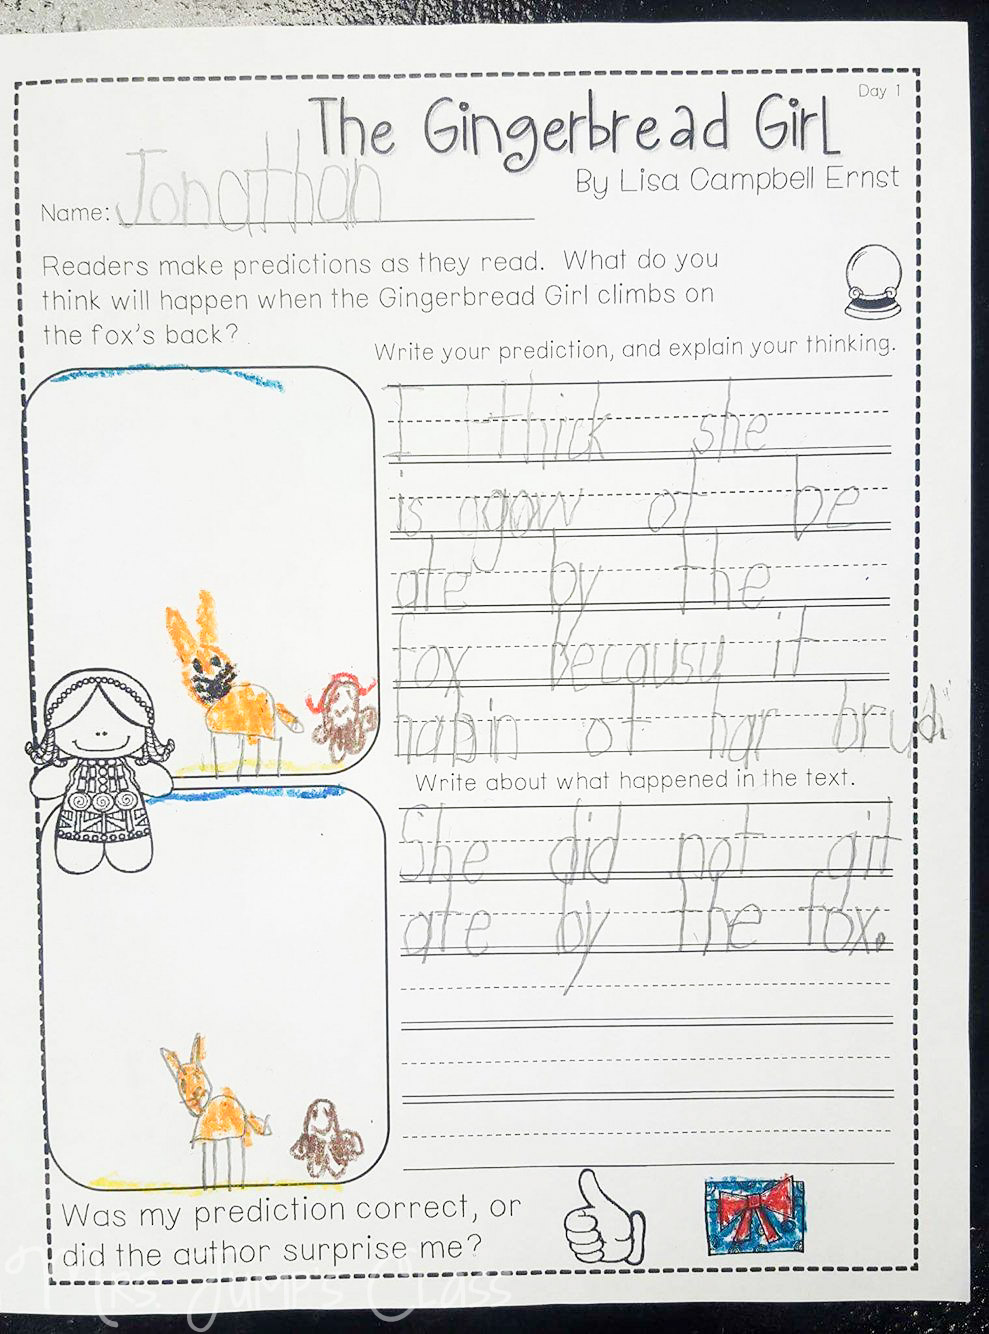 Day 1
The Gingerbread Girl
By Lisa Campbell Ernst
Name: Jonathan
Readers make predictions as they read. What do you
think will happen when the Gingerbread Girl climbs on
the fox's back?
Write your prediction, and explain your thinking.
I thick she
is agow ot be
ate by the
fox Becausu it
habin ot har brudr
Write about what happened in the text.
She did not git
ate by the fox.
Was my prediction correct, or
did the author surprise me?
Mrs. Jump's Class